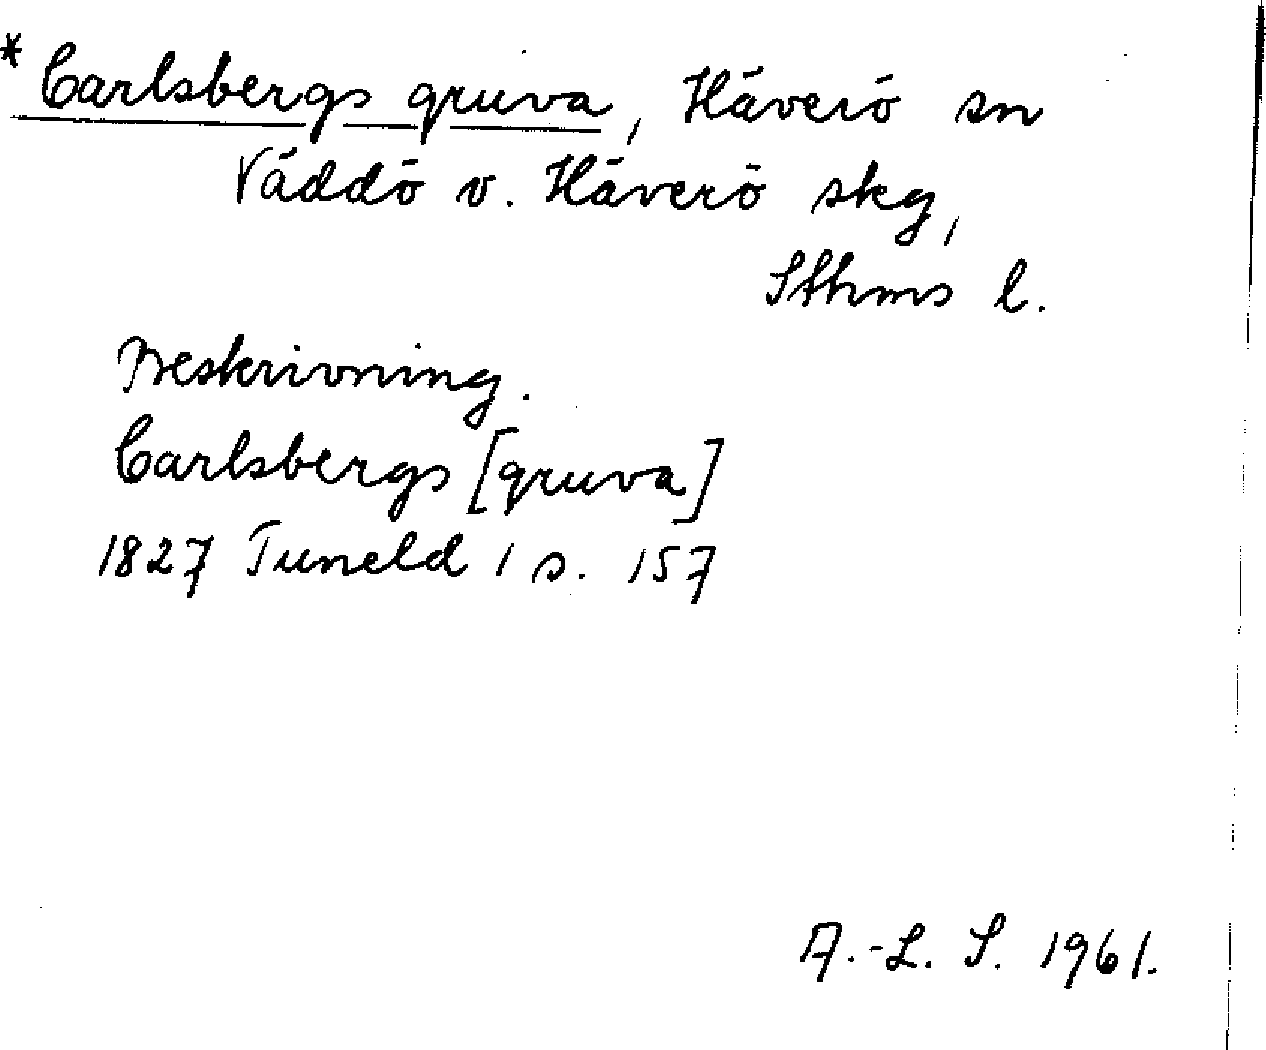 * Carlsbergs gruva, Häverö sn
Väddö o. Häverö skg,
Sthms l.
Beskrivning.
Carlsbergs [gruva]
1827 Tuneld 1 s. 157
A.-L. S. 1961.